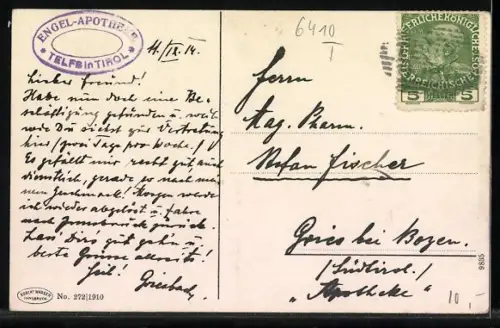 ENGEL-APOTHEKE
TELFS in TIROL
11./IX. 14.
6410
I
KAISERLICHE KÖNIGLICHE ÖSTERREICHISCHE POST
5 5
Lieber Freund!
Habe nun doch eine Be-
schäftigung gefunden u. wohl
wie Du siehst zur Vertretung
hier (zwei Tage pro Woche.)
Es gefällt mir recht gut auch
dienstlich, gerade so nach mei-
nem Geschmack! Morgen werde
ich wieder abgelöst u. fahre
nach Innsbruck zurück.
Lass dirs gut gehn u.
beste Grüsse allerseits!
Heil! Griesbach
Herrn
Mag. Pharm.
Stefan Fischer
Gries bei Bozen.
(Südtirol.)
"Apotheke"
No. 272|1910
9835
10,-